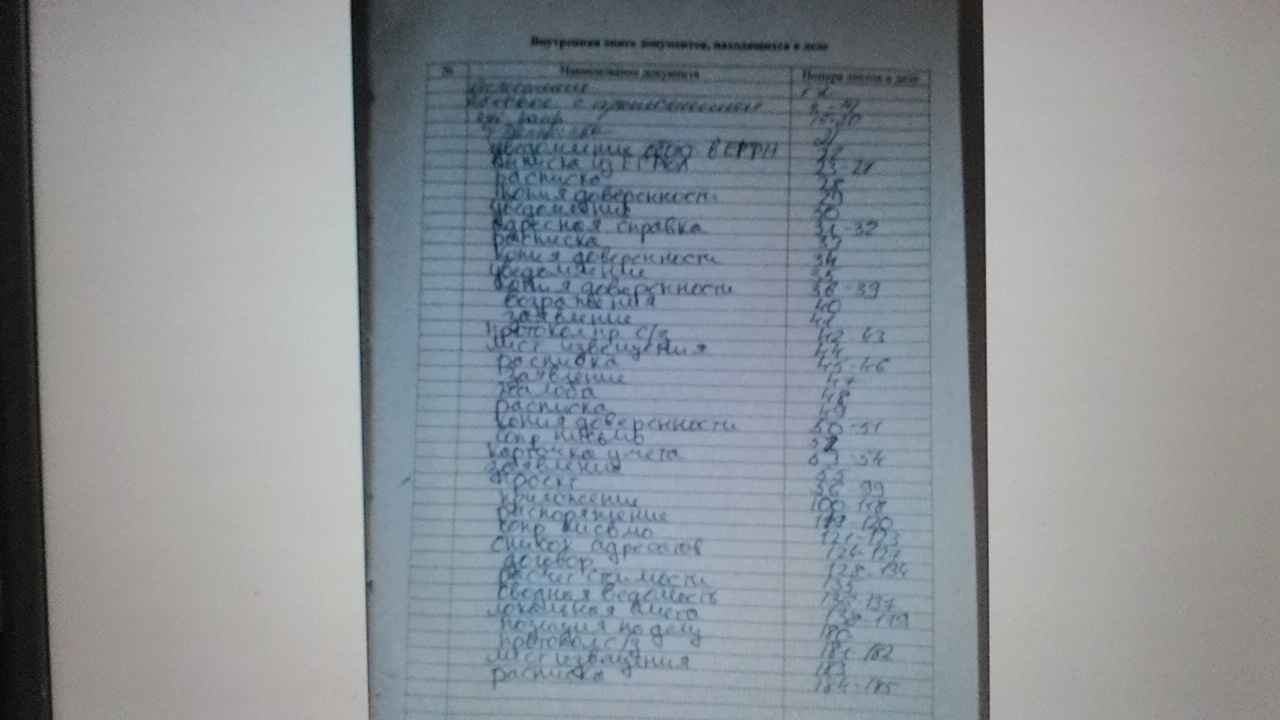 Внутренняя опись документов, находящихся в деле
№ Наименование документа Номера листов в деле
исковое с приложением
уведомление ВЕРТН
выписка из 23-27
расписка 28
копия доверенности 29
уведомление 30
адресная справка 31-32
расписка 33
копия доверенности 34
уведомление 35
копия доверенности 36-39
возражения 40
заявление 41
протокол пр. с/з 42 43
лист извещения 44
расписка 45-46
заявление 47
жалоба 48
расписка 49
копия доверенности 50-51
сопр письмо 52
карточка учета 53-54
заявления 55
проект 56 99
приложение 100-118
распоряжение 119-120
сопр письмо 121-123
список адресатов 124-127
договор 128-134
расчет стоимости 135
сводная ведомость 136-137
локальная смета 138-179
позиция по делу 180
протокол с/з 181-182
лист извещения 183
расписка 184-185